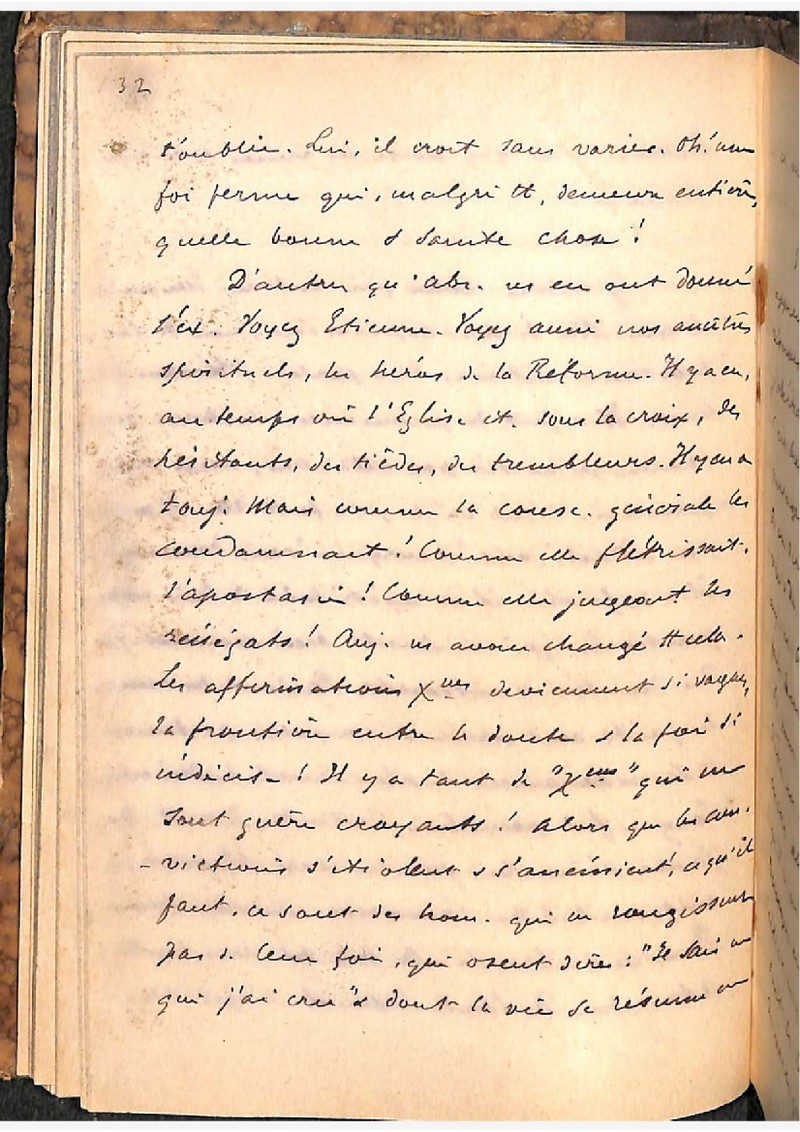 32
t'oublie. Lui, il croit sans varier. Oh! une
foi ferme qui, malgré tt, demeure entière,
quelle bonne & sainte chose!
D'autres qu'Abr. ns en ont donné
l'ex. Voyez Etienne. Voyez aussi nos ancêtres
spirituels, les héros de la Réforme. Il y a eu,
au temps où l'Eglise ét. sous la croix, des
hésitants, des tièdes, des trembleurs. Il y en a
touj. Mais comme la consc. générale les
condamnait! Comme elle flétrissait
l'apostasie! Comme elle jugeait les
renégats! Auj. ns avons changé tt cela.
Les affirmations χnes deviennent si vagues,
la frontière entre le doute & la foi si
indécise! Il y a tant de "χens" qui ne
sont guère croyants! Alors que les con-
-victions s'étiolent & s'anémient, ce qu'il
faut, ce sont des hom. qui ne rougissent
pas de leur foi, qui osent dire: "Je sais en
qui j'ai cru" & dont la vie se résume en